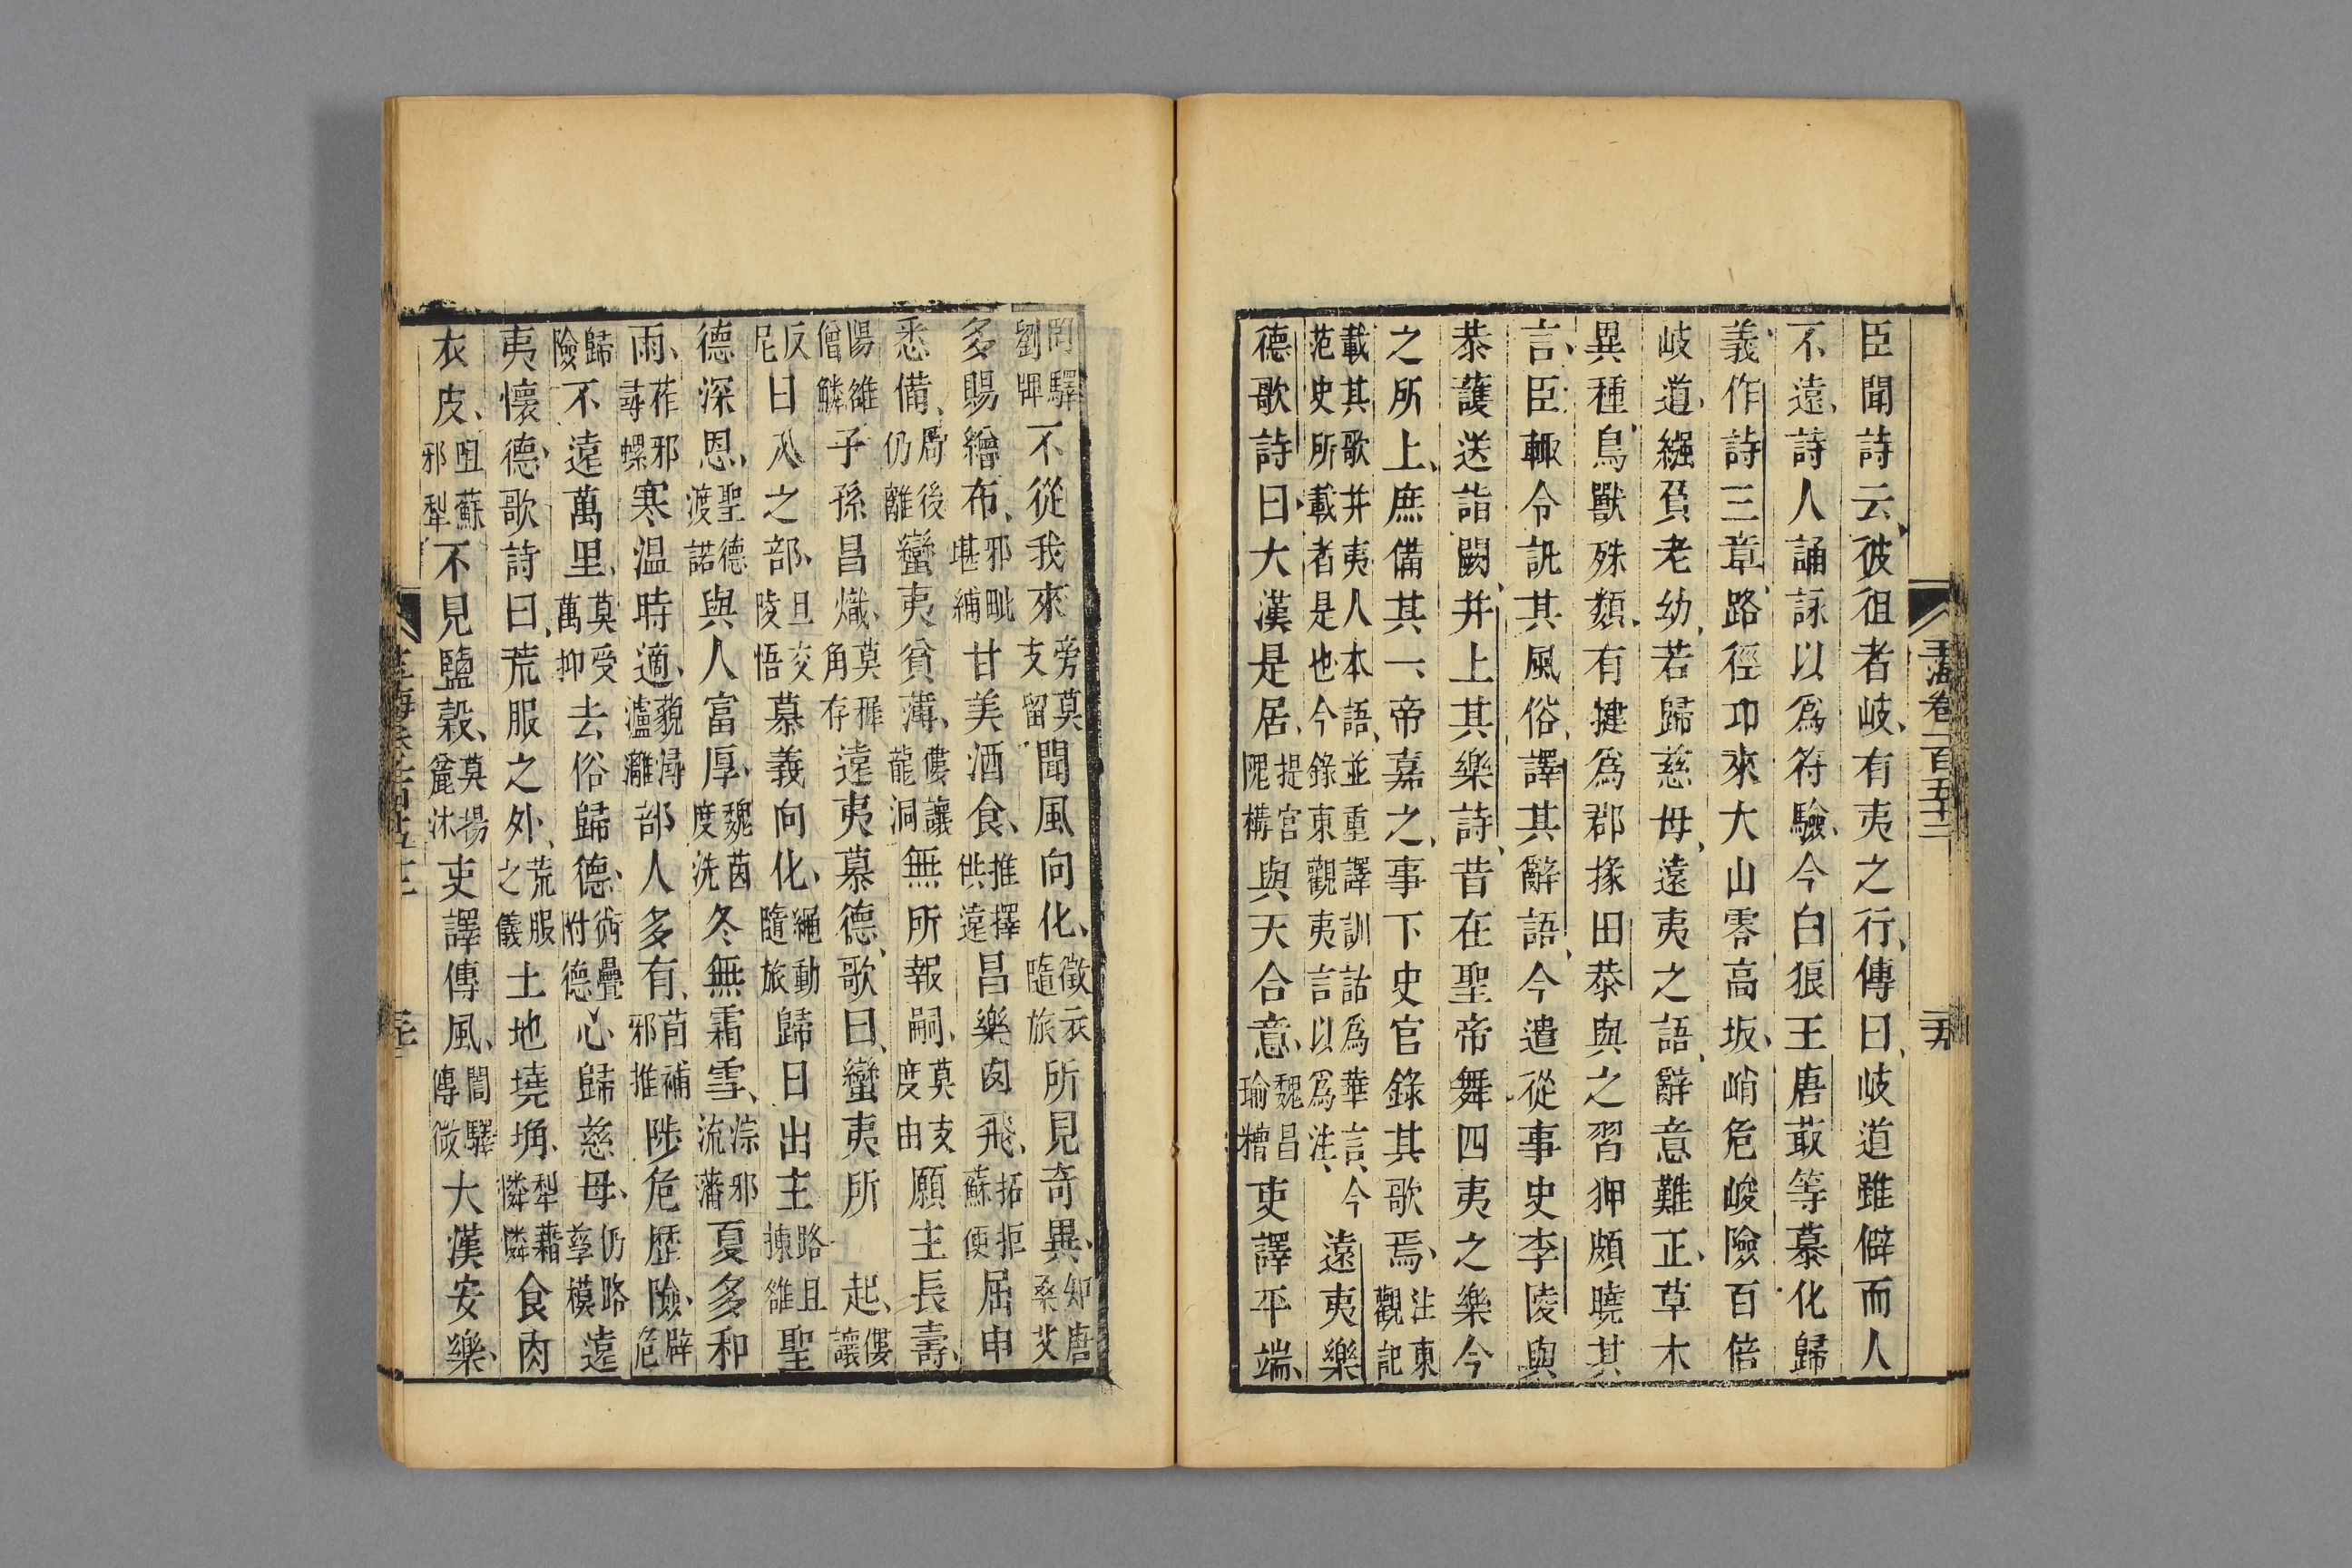 臣聞詩云彼徂者岐有夷之行傳曰岐道雖僻而人
不遠詩人誦詠以爲符驗今白狼王唐菆等慕化歸
義作詩三章路徑邛來大山零高坂峭危峻險百倍
岐道繦負老幼若歸慈母遠夷之語辭意難正草木
異種鳥獸殊類有犍爲郡掾田恭與之習狎頗曉其
言臣輒令訊其風俗譯其辭語今遣從事史李陵與
恭護送詣闕幷上其樂詩昔在聖帝舞四夷之樂今
之所上庶備其一帝嘉之事下史官錄其歌焉注東觀記
載其歌幷夷人本語並重譯訓詁爲華言今范史所載者是也今錄東觀夷言以爲注遠夷樂
德歌詩曰大漢是居隄官隗構與天合意魏昌瑜糟吏譯平端
罔驛劉脾不從我來旁莫支留聞風向化徵衣隨旅所見奇異知唐桑艾
多賜繒布邪毗𡎺補甘美酒食推擇供遠昌樂肉飛拓拒蘇便屈申
悉備局後仍離蠻夷貧薄僂讓龍洞無所報嗣莫支度由願主長壽
陽雒僧鱗子孫昌熾莫穉角存遠夷慕德歌曰蠻夷所 起僂讓
反尼曰入之部且交陵悟慕義向化繩動隨旅歸日出主路且揀雒聖
德深恩聖德渡諾與人富厚魏茵度洗冬無霜雪淙邪流藩夏多和
雨莋邪尋螺寒温時適藐潯瀘灕部人多有苜補邪推陟危歷險辟危
歸險不遠萬里莫受萬抑去俗歸德術疊附德心歸慈母仍路孳模遠
夷懷德歌詩曰荒服之外荒服之儀土地墝埆犁藉憐憐食肉
衣皮岨蘇邪犁不見鹽穀莫楊麄沐吏譯傳風罔驛傳微大漢安樂